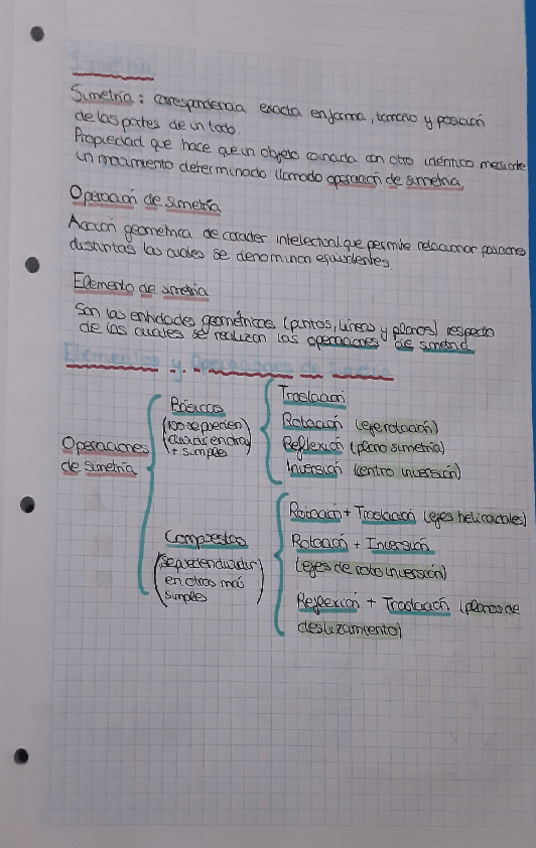 Simetría
Simetría: correspondencia exacta en forma, tamaño y posición
de las partes de un todo.
Propiedad que hace que un objeto coincida con otro idéntico mediante
un movimiento determinado llamado operación de simetría
Operación de simetría
Acción geometrica de caracter intelectual que permite relacionar posiciones
distintas las cuales se denominan equivalentes
Elemento de simetria
Son las entidades geométricas (puntos, líneas y planos) respecto
de las cuales se realizan las operaciones de simetria
Elementos y Operaciones de Simetría
Operaciones
de simetría
Básicas
(no se pueden
dividir en otras
+ simples)
Traslación
Rotación (eje rotación)
Reflexión (plano simetría)
Inversión (centro inversión)
Compuestas
(se pueden dividir
en otras más
simples)
Rotación + Traslación (ejes helicoidales)
Rotación + Inversión
(ejes de roto inversión)
Reflexión + Traslación (planos de
deslizamiento)